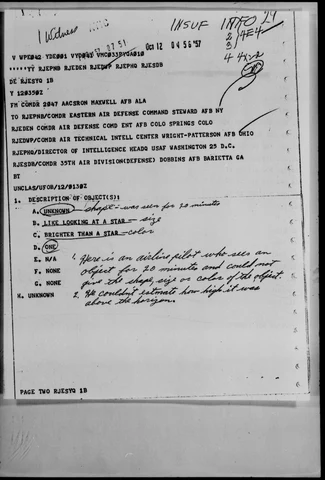 INSUF INFO 24
1 Witness
Oct 12 04 56 '57
2 4E4
3
4 4x2x
V WPE042 YDE001 VYD041 VMC033BYGA010
YY RJEPHQ RJEDEN RJEDWP RJEPNQ RJESDB
DE RJESYQ 1B
Y 120350Z
FM COMDR 2047 AACSRON MAXWELL AFB ALA
TO RJEPNB/COMDR EASTERN AIR DEFENSE COMMAND STEWARD AFB NY
RJEDEN COMDR AIR DEFENSE COMD ENT AFB COLO SPRINGS COLO
RJEDWP/COMDR AIR TECHNICAL INTELL CENTER WRIGHT-PATTERSON AFB OHIO
RJEPHQ/DIRECTOR OF INTELLIGENCE HEADQ USAF WASHINGTON 25 D.C.
RJESDB/COMDR 35TH AIR DIVISION(DEFENSE) DOBBINS AFB BARIETTA GA
BT
UNCLAS/UFOB/12/0130Z
1. DESCRIPTION OF OBJECT(S):
A. UNKNOWN - shape - was seen for 20 minutes
B. LIKE LOOKING AT A STAR - size
C. BRIGHTER THAN A STAR - color
D. ONE
E. N/A 1. Here is an airline pilot who sees an
F. NONE object for 20 minutes and could not
G. NONE give the shape, size or color of the object.
H. UNKNOWN 2. He couldn't estimate how high it was
above the horizon.
PAGE TWO RJESYQ 1B